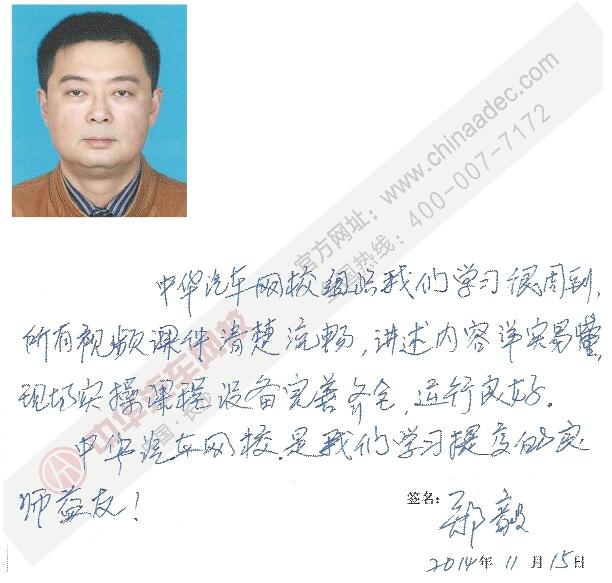 官方网址：www.chinaadec.com
全国热线：400-007-7172
中华汽车网校组织我们学习很周到，
所有视频课件清楚流畅，讲述内容详实易懂，
现场实操课程设备完善齐全，运行良好。
中华汽车网校，是我们学习提高的良
师益友！
签名：
郑毅
2014年11月15日
中华汽车网校